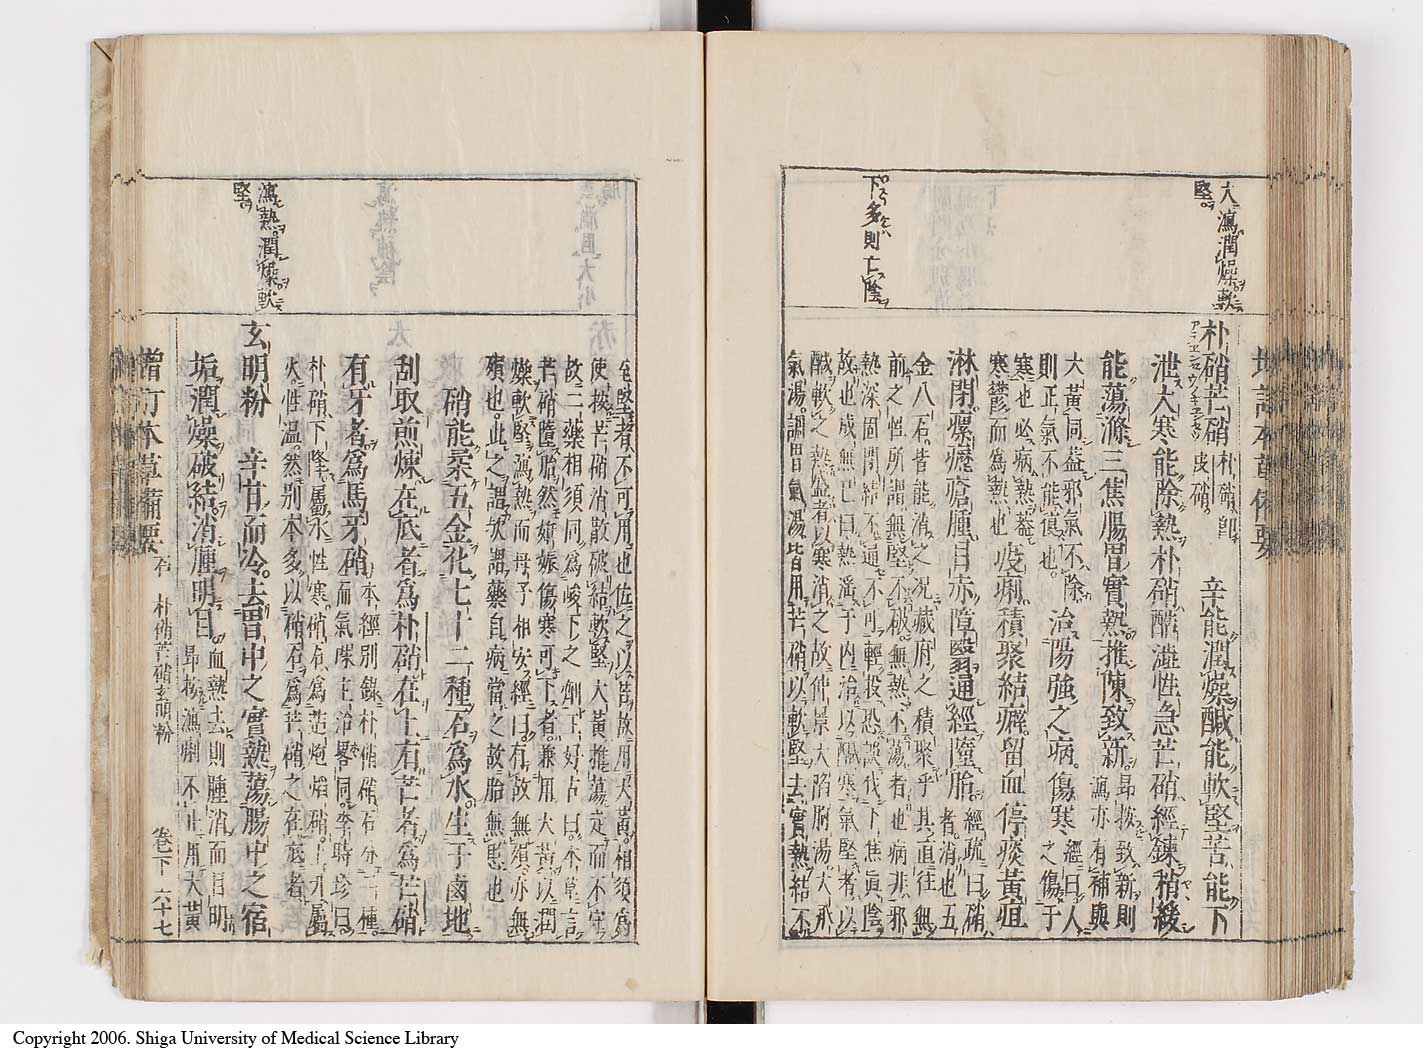 大瀉潤燥軟
堅
下多則亡陰
朴硝芒硝
朴硝卽
皮硝
辛能潤燥鹹能軟堅苦能下
泄大寒能除熱朴硝酷澁性急芒硝經鍊稍緩
能蕩滌三焦腸胃實熱推陳致新
昂按致新則
瀉亦有補與
大黃同蓋邪氣不除
則正氣不能復也
治陽強之病傷寒
經曰人
之傷于
寒也必病熱蓋
寒鬱而為熱也
疫痢積聚結癖留血停痰黃疸
淋閉瘰癧瘡腫目赤障翳通經墮胎
經疏曰硝
者消也五
金八石皆能消之况藏府之積聚乎其直往無
前之性所謂無堅不破無熱不蕩者也病非邪
熱深固閉結不通不可輕投恐誤伐下焦眞陰
故也成無已曰熱淫于内治以鹹寒氣堅者以
鹹軟之熱盛者以寒消之故仲景大陷胸湯大承
氣湯調胃氣湯皆用芒硝以軟堅去實熱結不
至堅者不可用也佐之以苦故用大黃相須爲
使按芒硝消散破結軟堅大黃推蕩走而不守
故二藥相須同為峻下之劑王好古曰本草言
芒硝墮胎然妊娠傷寒可下者兼用大黃以潤
燥軟堅瀉熱而母子相安經曰有故無殞亦無
殞也此之謂欤謂藥自病當之故胎無患也
硝能柔五金化七十二種石爲水生于鹵地
刮取煎煉在底者爲朴硝在上有芒者爲芒硝
有牙者爲馬牙硝
本經別錄朴硝硝石分二種
而氣味主治畧同李時珍曰
朴硝下降屬水性寒硝石為造炮焰硝上升屬
火性温然別本多以硝石爲芒硝之在底者
瀉熱潤燥軟
堅
玄明粉
辛甘而冷去胃中之實熱蕩腸中之宿
垢潤燥破結消腫明目
血熱去則腫消而目明
昂按瀉痢不止用大黃
增訂本草備要
石
朴硝芒硝玄明粉
卷下
六十七
Copyright 2006. Shiga University of Medical Science Library